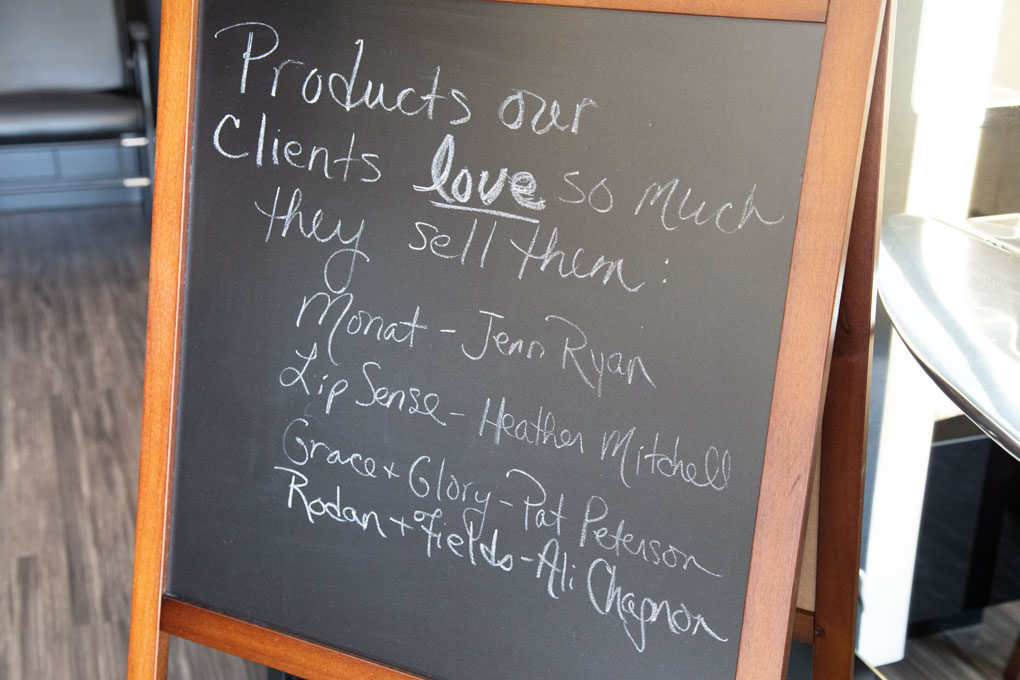 Products our
Clients love so much
they sell them:
Monat - Jenn Ryan
Lip Sense - Heather Mitchell
Grace + Glory - Pat Peterson
Rodan + Fields - Ali Chapnon